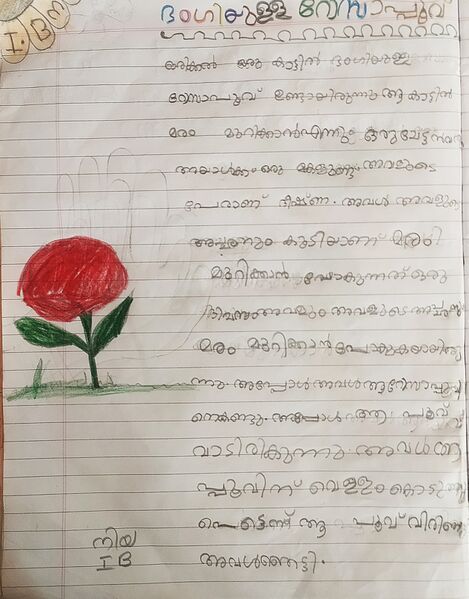 I B
ഭംഗിയുള്ള റോസാപ്പൂവ്
ഒരിക്കൽ ഒരു കാട്ടിൽ ഭംഗിയുള്ള
റോസാപൂവ് ഉണ്ടായിരുന്നു ആ കാട്ടിൽ
മരം മുറിക്കാൻ എന്നും ഒരു
അയാൾക്ക് ഒരു മകളുണ്ടു അവളുടെ
പേരാണ് അവൾ അവളുടെ
അച്ഛനും കൂടിയാണ് മരം
മുറിക്കൻ പോകുന്നത് ഒരു
ദിവസം അവളും അവളുടെ അച്ഛനും
മരം മുറിക്കാൻ പോകുകയായിരു
ന്നു. അപ്പോൾ അവൾ ആ റോസാപ്പൂവി
നെ കണ്ടു. അപ്പോൾ ആ പൂവ്
വാടിരിക്കുന്നു. അവൾ ആ
പ്പൂവിന് വെള്ളം കൊടുത്തു
പെട്ടെന്ന് ആ പൂവ് വിരിഞ്ഞു
അവൾഞെട്ടി.
നിയ
I B